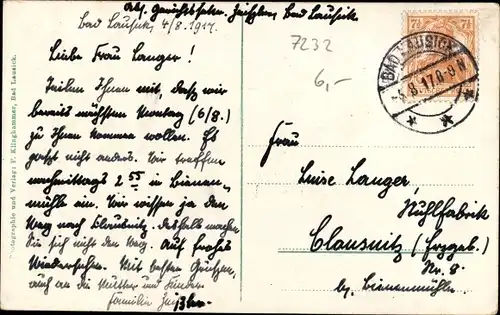 Abs. Gerichtssekr. Zeißler, Bad Lausick
Bad Lausick, 4/8. 1917.
Liebe Frau Langer!
Teilen Ihnen mit, daß wir
bereits nächsten Montag (6/8.)
zu Ihnen kommen wollen. Es
geht nicht anders. Wir treffen
nachmittags 2 55 in Bienen-
mühle ein. Wir wissen ja den
Weg nach Clausnitz. Deshalb machen
Sie sich nicht den Weg. Auf frohes
Wiedersehen. Mit besten Grüßen,
auch an die Mutter und Kinder
Familie Zeißler.
7232
6,-
7½ 7½
BAD LAUSICK
-5.8.17.8-9 N
Frau
Luise Langer,
Stuhlfabrik
Clausnitz (Erzgeb.)
Nr. 8.
by. Bienenmühle
Photographie und Verlag: F. Klinghammer, Bad Lausick.